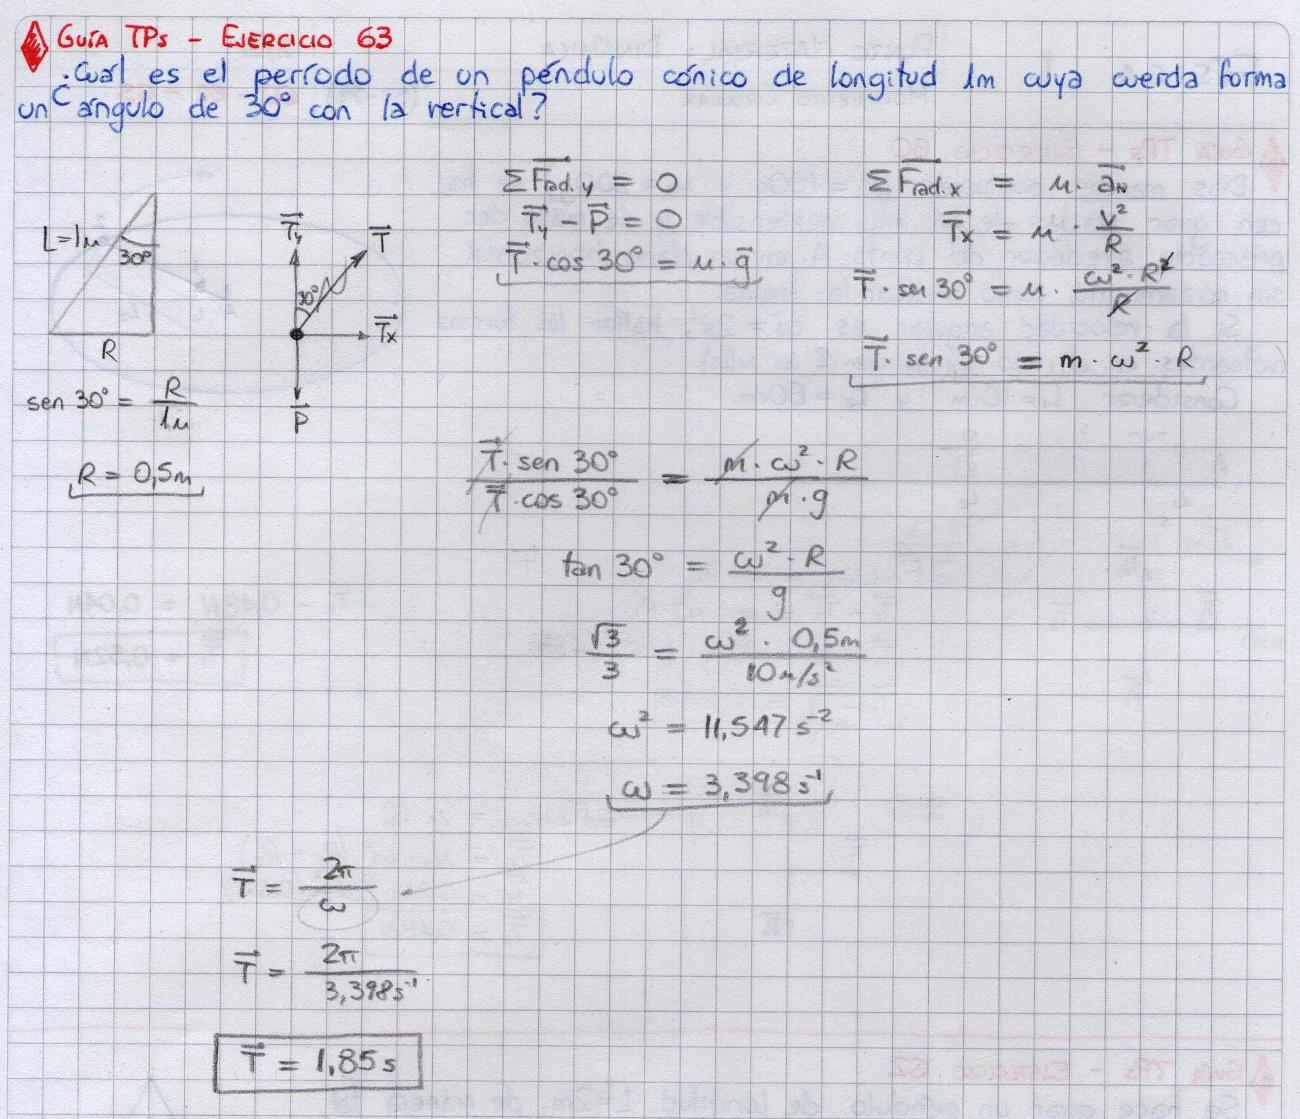 Guía TPs - Ejercicio 63
¿Cuál es el período de un péndulo cónico de longitud 1m cuya cuerda forma
un ángulo de 30° con la vertical?
L=1m
30°
R
sen 30° = R/1m
R = 0,5m
Ty
T
30°
Tx
P
Σ Frad.y = 0
Ty - P = 0
T · cos 30° = m · g
Σ Frad.x = m · aN
Tx = m · V²/R
T · sen 30° = m · ω² · R²/R
T · sen 30° = m · ω² · R
T · sen 30° / T · cos 30° = m · ω² · R / m · g
tan 30° = ω² · R / g
√3/3 = ω² · 0,5m / 10m/s²
ω² = 11,547 s⁻²
ω = 3,398 s⁻¹
T = 2π/ω
T = 2π/3,398s⁻¹
T = 1,85 s